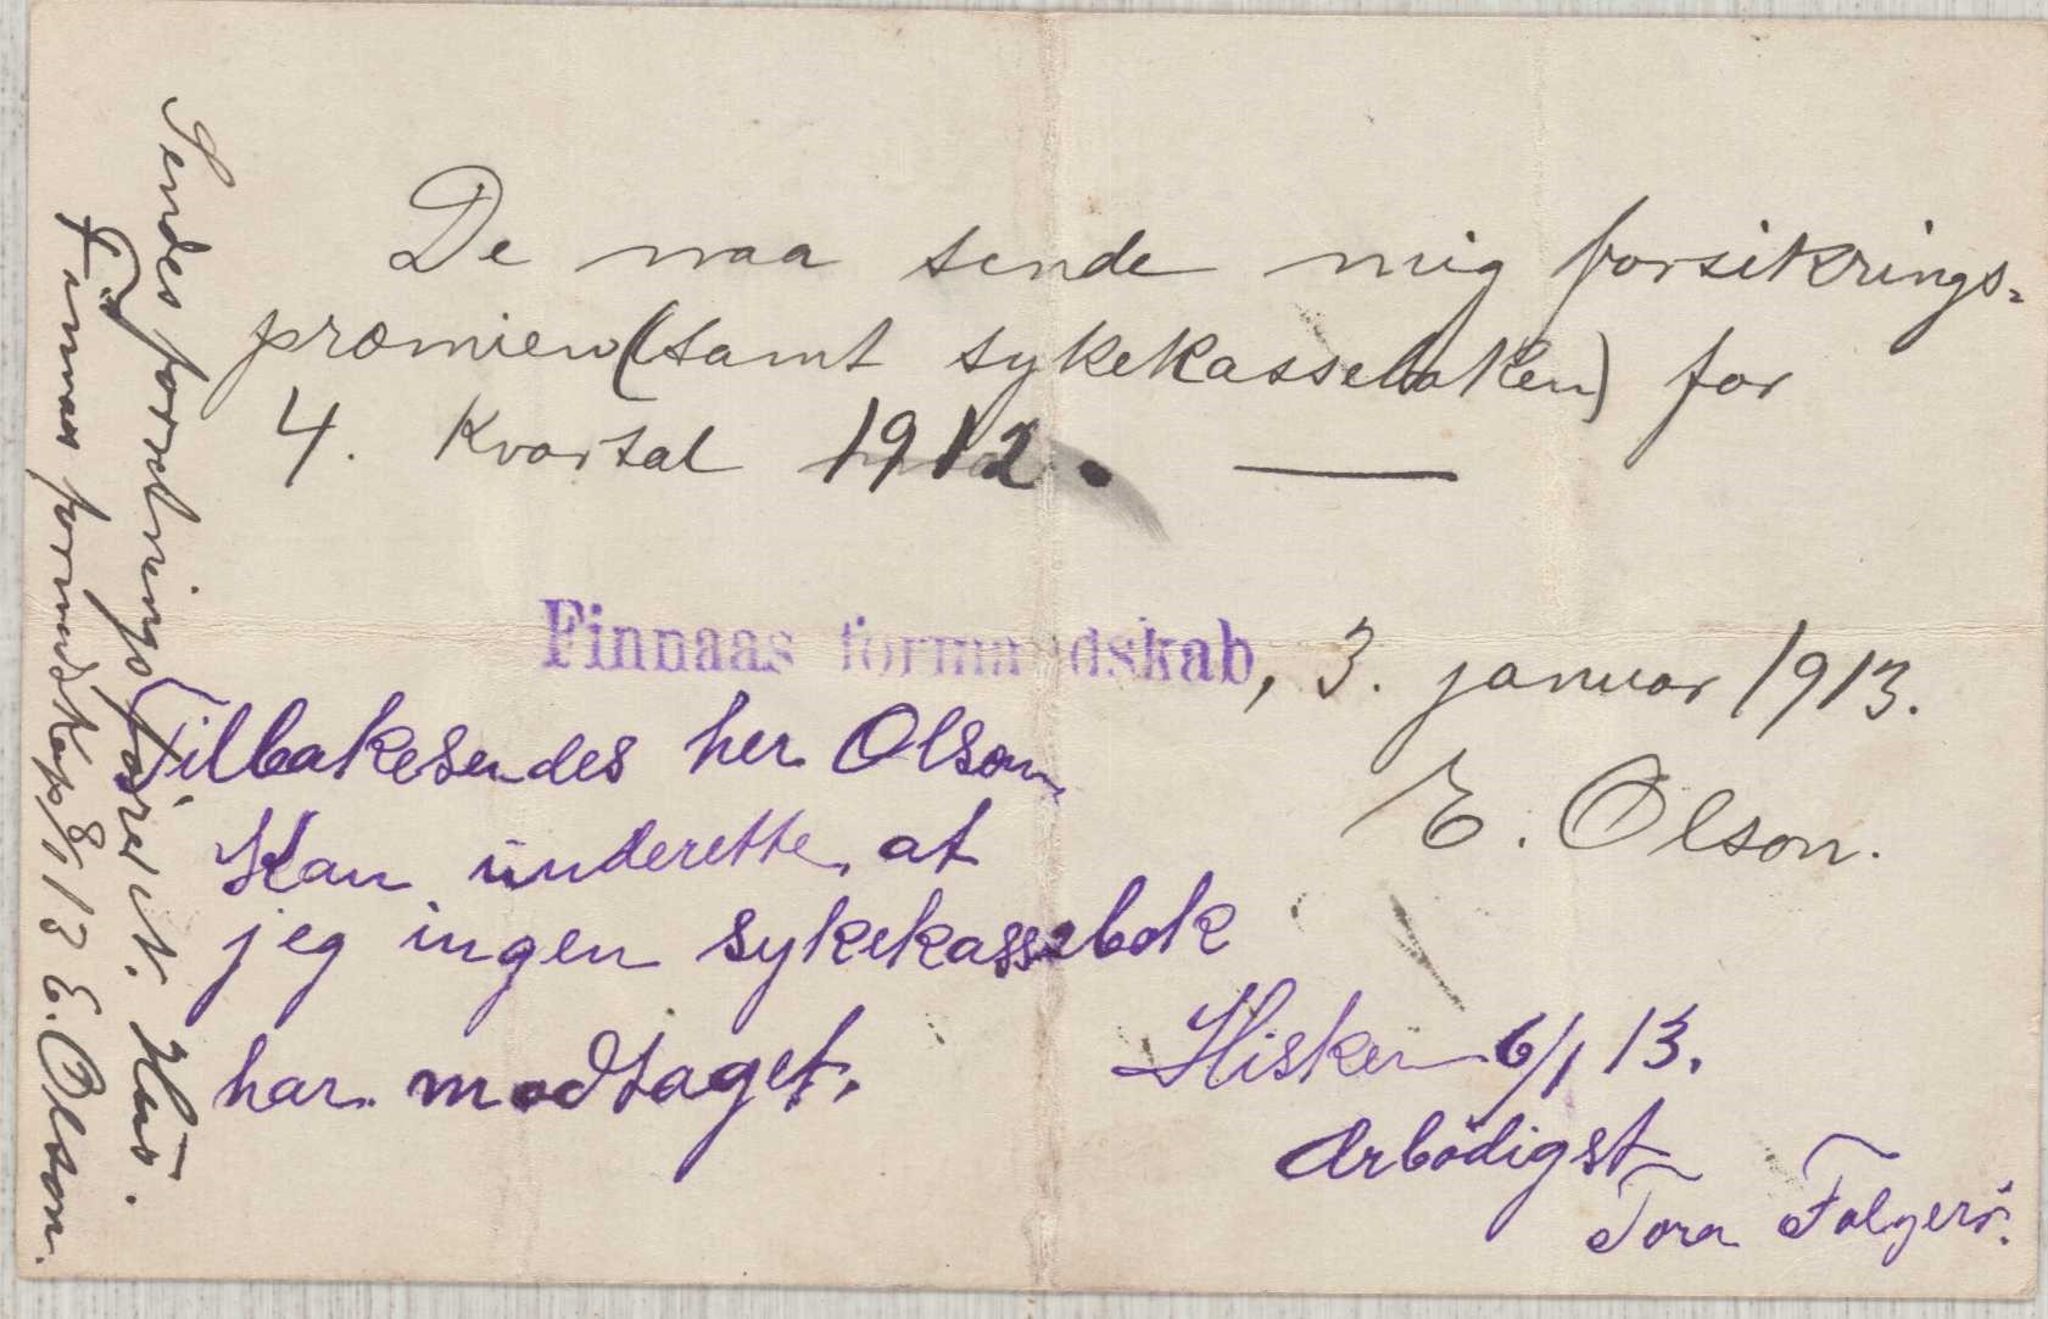 De maa sende mig forsikrings=
præmien (samt sykekasseboken) for
4. Kvartal 1912.
Finnaas formandskab, 3. januar 1913.
E. Olson.
Tilbakesendes her Olson,
Kan underette, at
jeg ingen sykekassebok
har modtaget.
Hisken 6/1 13.
Ærbødigst
Tora Folgerö.
Sendes forretningsfører N. Hus.
Finnaas formandskap 8/1 13 E. Olson.